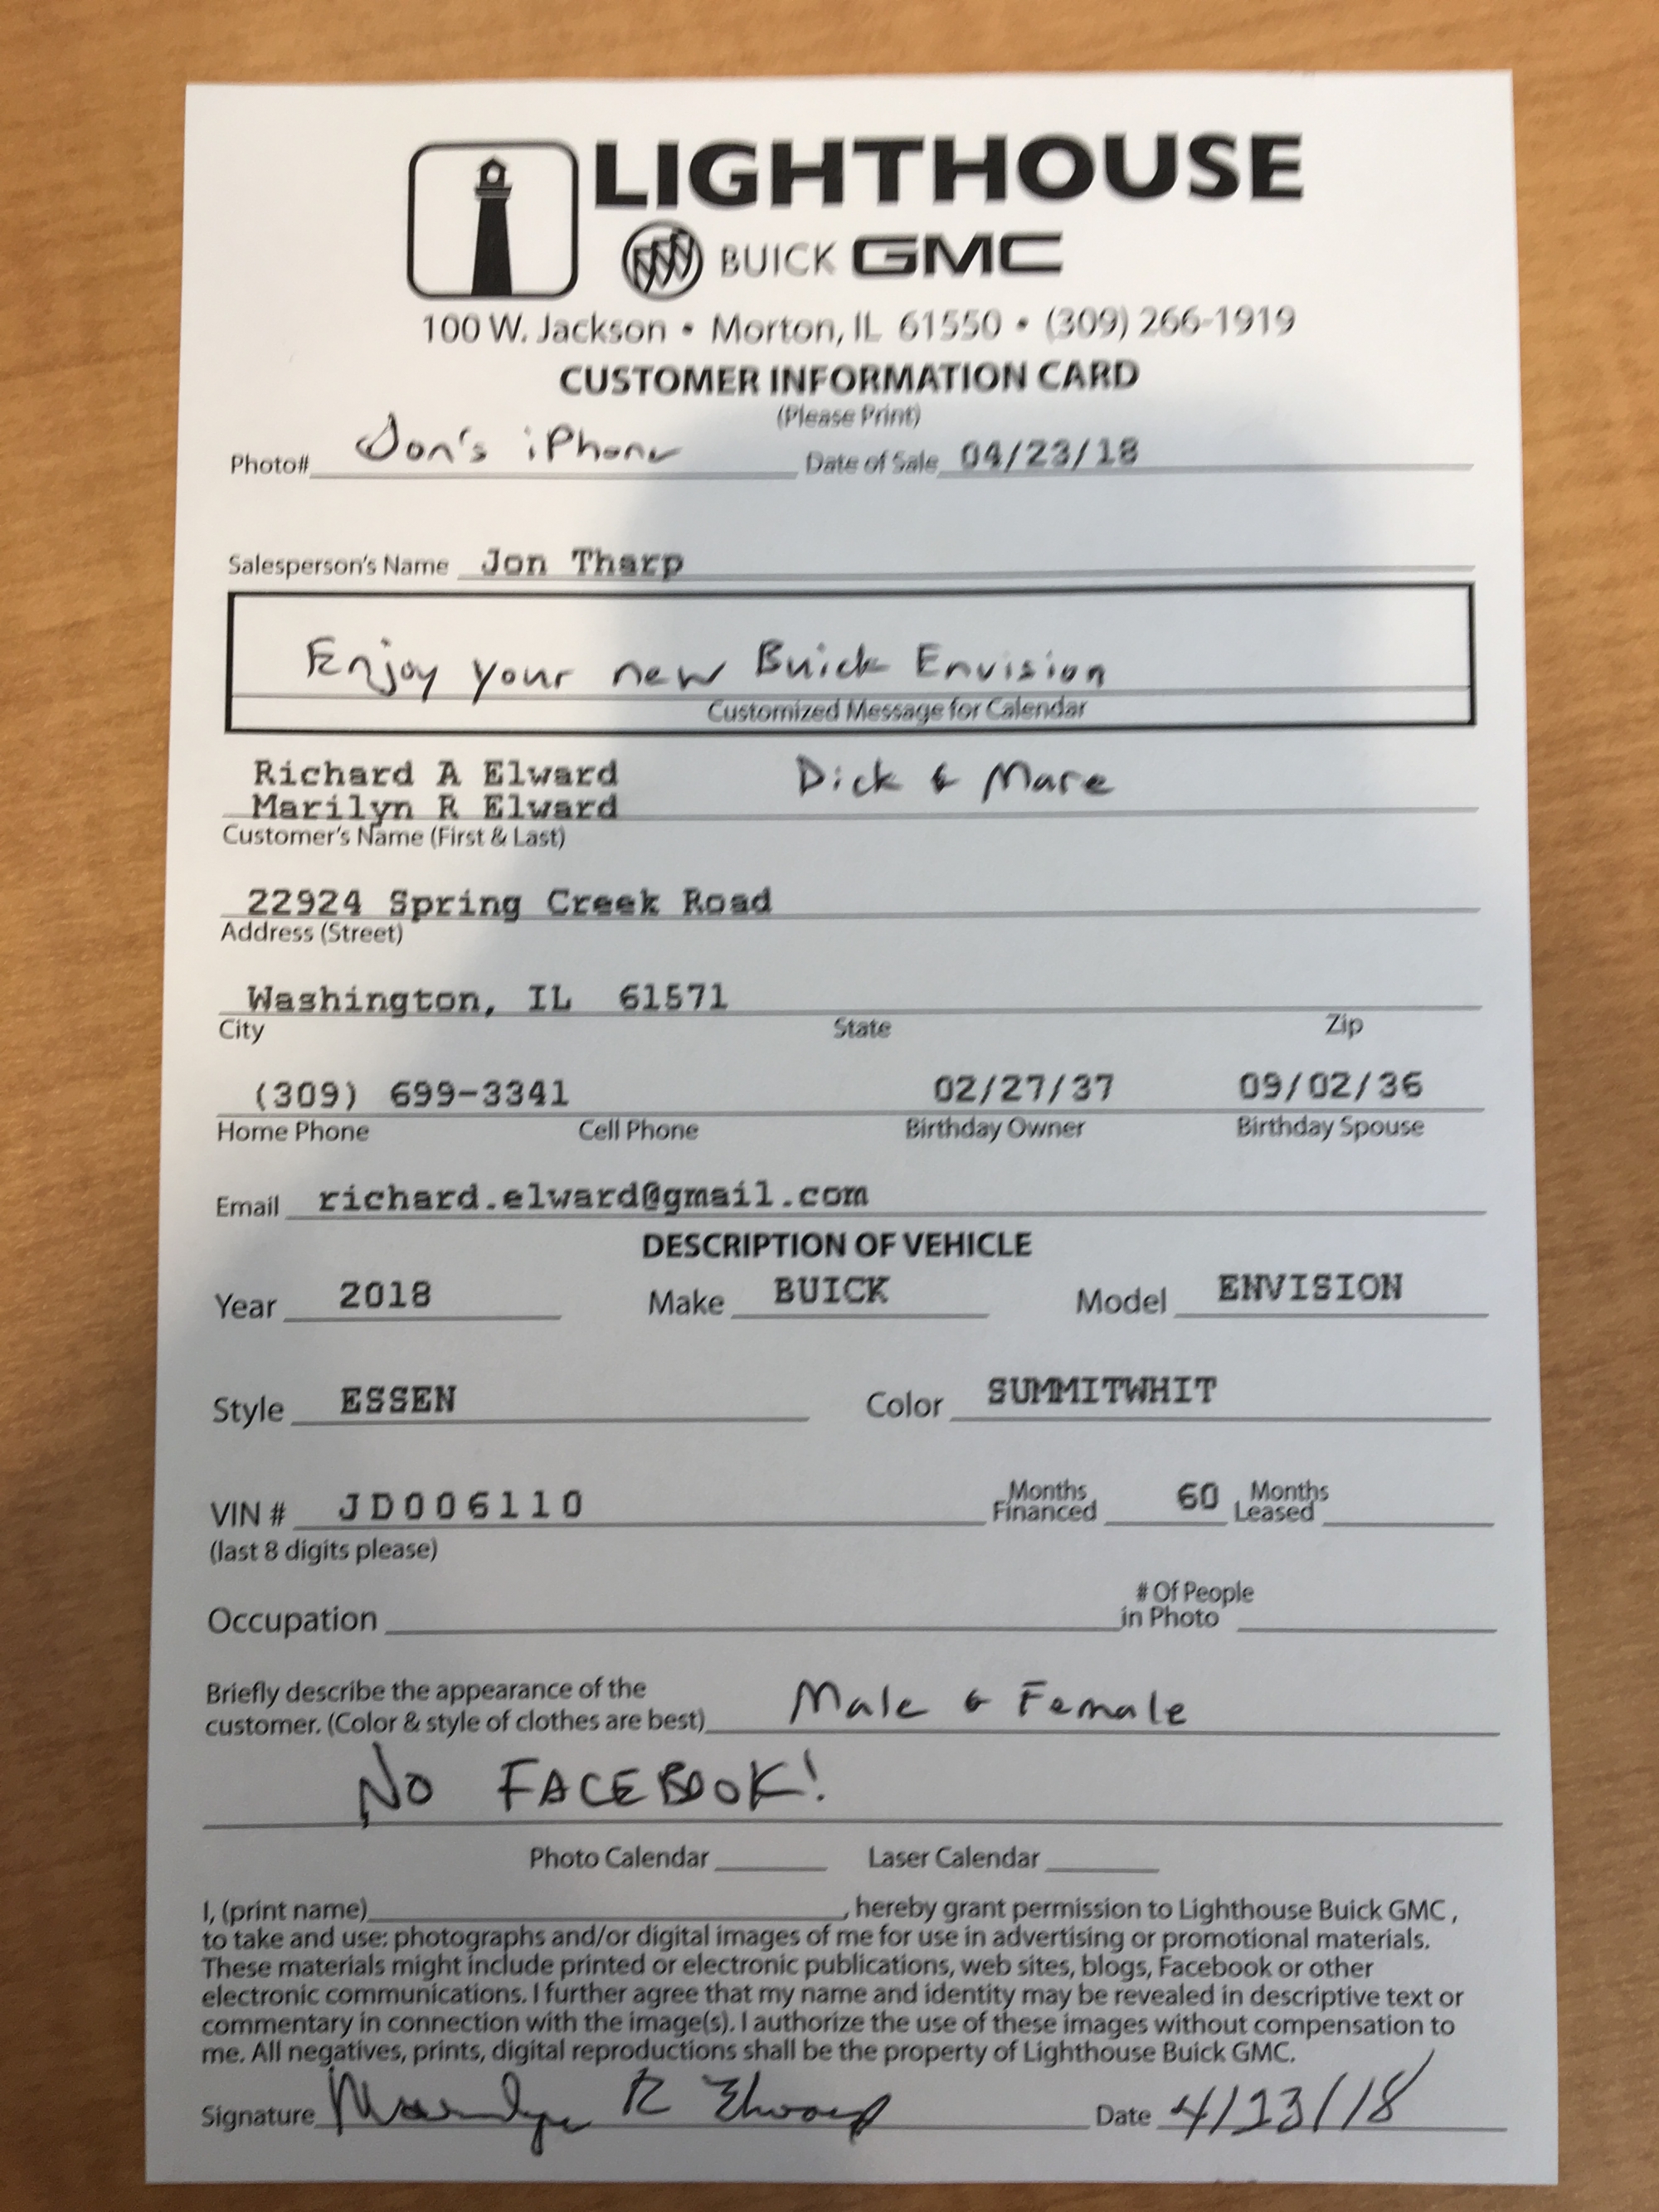 LIGHTHOUSE
BUICK GMC
100 W. Jackson • Morton, IL 61550 • (309) 266-1919
CUSTOMER INFORMATION CARD
(Please Print)
Photo# Jon's iPhone Date of Sale 04/23/18
Salesperson's Name Jon Tharp
Enjoy your new Buick Envision
Customized Message for Calendar
Richard A Elward Dick & Mare
Marilyn R Elward
Customer's Name (First & Last)
22924 Spring Creek Road
Address (Street)
Washington, IL 61571
City State Zip
(309) 699-3341 02/27/37 09/02/36
Home Phone Cell Phone Birthday Owner Birthday Spouse
Email richard.elward@gmail.com
DESCRIPTION OF VEHICLE
Year 2018 Make BUICK Model ENVISION
Style ESSEN Color SUMMITWHIT
VIN # JD006110 Months Financed 60 Months Leased
(last 8 digits please)
Occupation # Of People in Photo
Briefly describe the appearance of the
customer. (Color & style of clothes are best) Male & Female
NO FACEBOOK!
Photo Calendar Laser Calendar
I, (print name) , hereby grant permission to Lighthouse Buick GMC ,
to take and use: photographs and/or digital images of me for use in advertising or promotional materials.
These materials might include printed or electronic publications, web sites, blogs, Facebook or other
electronic communications. I further agree that my name and identity may be revealed in descriptive text or
commentary in connection with the image(s). I authorize the use of these images without compensation to
me. All negatives, prints, digital reproductions shall be the property of Lighthouse Buick GMC.
Signature Marilyn R Elward Date 4/23/18